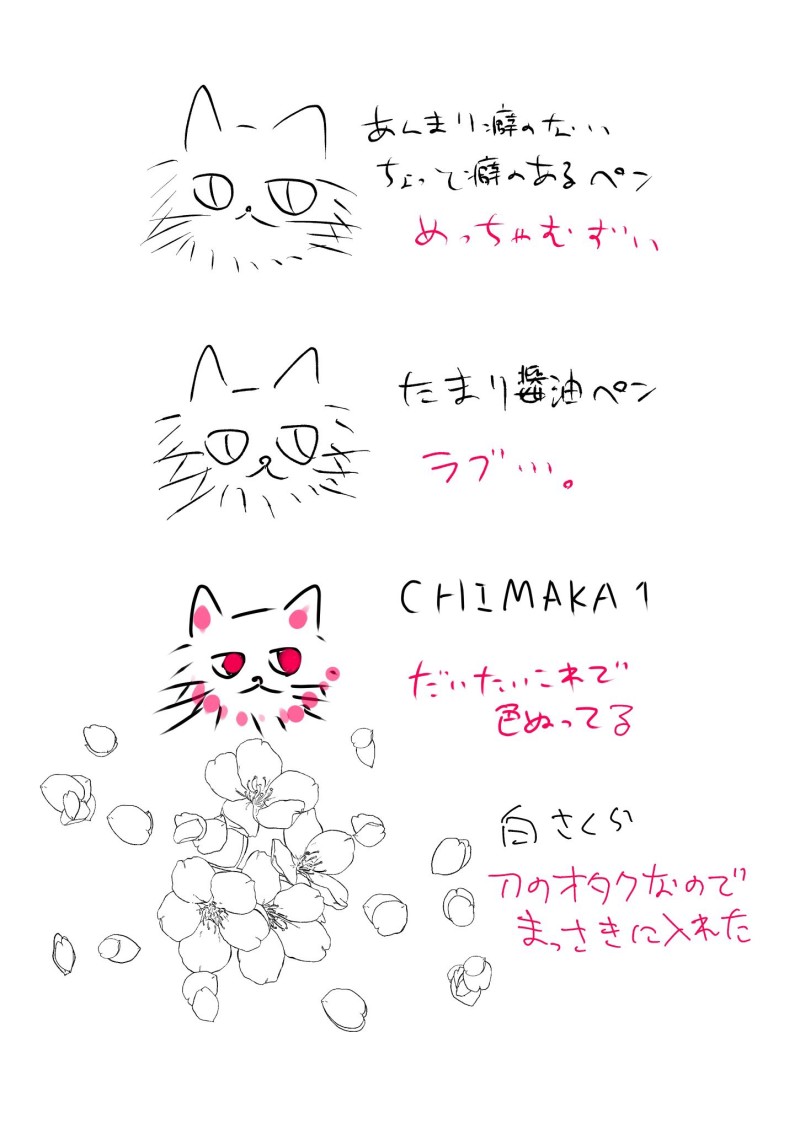 あんまり癖のない
ちょっと癖のあるペン
めっちゃむずい
たまり醤油ペン
ラブ…。
CHIMAKA1
だいたいこれで
色ぬってる
白さくら
刀のオタクなので
まっさきに入れた